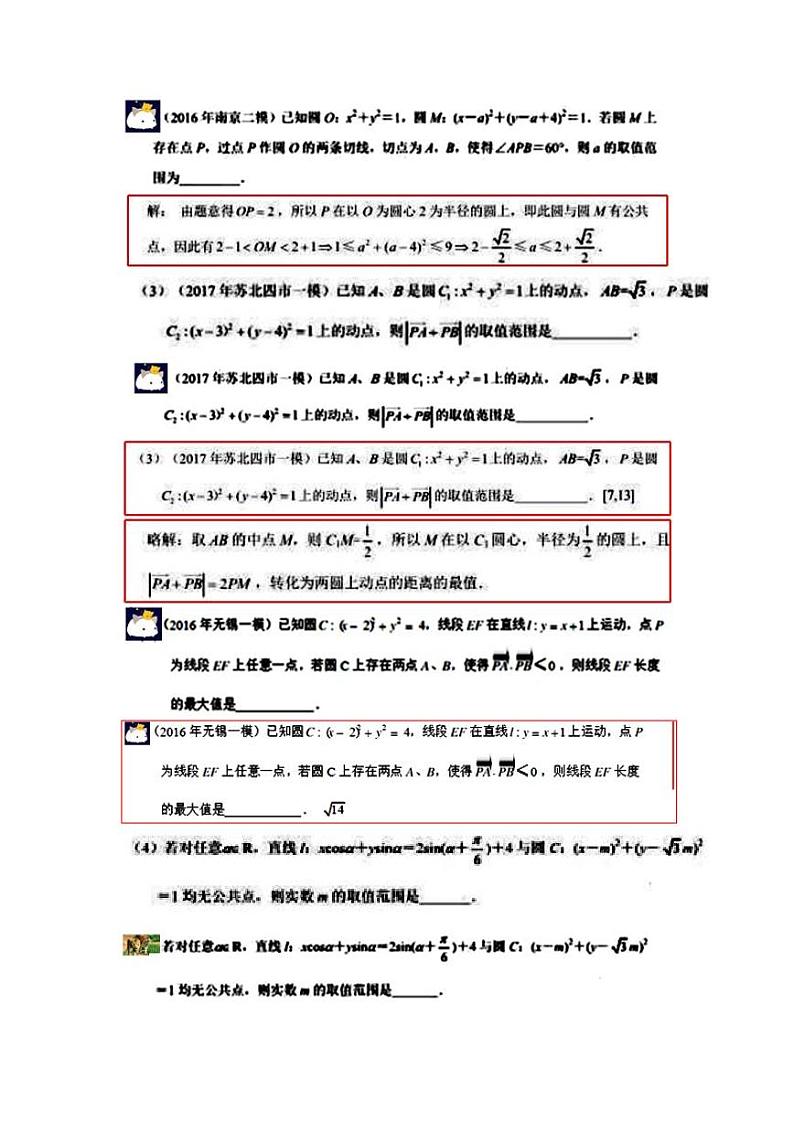 (2016年南京二模)已知圆O：x²+y²=1，圆M：(x-a)²+(y-a+4)²=1．若圆M上
存在点P，过点P作圆O的两条切线，切点为A，B，使得∠APB=60°，则a的取值范
围为________．
解： 由题意得OP=2，所以P在以O为圆心2为半径的圆上，即此圆与圆M有公共
点，因此有2-1<OM<2+1⇒1≤a²+(a-4)²≤9⇒2-√2/2≤a≤2+√2/2．
(3) (2017年苏北四市一模)已知A、B是圆C₁:x²+y²=1上的动点， AB=√3，P是圆
C₂:(x-3)²+(y-4)²=1上的动点，则|PA+PB|的取值范围是__________．
(2017年苏北四市一模)已知A、B是圆C₁:x²+y²=1上的动点， AB=√3，P是圆
C₂:(x-3)²+(y-4)²=1上的动点，则|PA+PB|的取值范围是__________．
(3) (2017年苏北四市一模)已知A、B是圆C₁:x²+y²=1上的动点， AB=√3，P是圆
C₂:(x-3)²+(y-4)²=1上的动点，则|PA+PB|的取值范围是__________．[7,13]
略解：取AB的中点M，则C₁M=1/2，所以M在以C₁圆心，半径为1/2的圆上，且
|PA+PB|=2PM，转化为两圆上动点的距离的最值．
(2016年无锡一模)已知圆C：(x-2)²+y²=4，线段EF在直线l：y=x+1上运动，点P
为线段EF上任意一点，若圆C上存在两点A、B，使得PA·PB<0，则线段EF长度
的最大值是__________．
(2016年无锡一模)已知圆C：(x-2)²+y²=4，线段EF在直线l：y=x+1上运动，点P
为线段EF上任意一点，若圆C上存在两点A、B，使得PA·PB<0，则线段EF长度
的最大值是__________． √14
(4)若对任意α∈R，直线l：xcosα+ysinα=2sin(α+π/6)+4与圆C：(x-m)²+(y-√3m)²
=1均无公共点，则实数m的取值范围是______．
若对任意α∈R，直线l：xcosα+ysinα=2sin(α+π/6)+4与圆C：(x-m)²+(y-√3m)²
=1均无公共点，则实数m的取值范围是______．